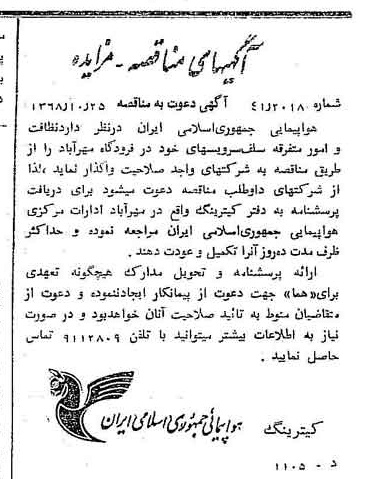 آگهیهای مناقصه - مزایده
شماره ۴۱/۲۰۱۸ آگهی دعوت به مناقصه ۱۳۶۸/۱۰/۲۵
هواپیمایی جمهوری‌اسلامی ایران درنظر داردنظافت
و امور متفرقه سلف‌سرویسهای خود در فرودگاه مهرآباد را از
طریق مناقصه به شرکتهای واجد صلاحیت واگذار نماید ،لذا
از شرکتهای داوطلب مناقصه دعوت میشود برای دریافت
پرسشنامه به دفتر کیترینگ واقع در مهرآباد ادارات مرکزی
هواپیمایی جمهوری‌اسلامی ایران مراجعه نموده و حداکثر
ظرف مدت ده‌روز آنرا تکمیل و عودت دهند .
ارائه پرسشنامه و تحویل مدارک هیچگونه تعهدی
برای«هما» جهت دعوت از پیمانکار ایجادننموده و دعوت از
متقاضیان منوط به تائید صلاحیت آنان خواهدبود و در صورت
نیاز به اطلاعات بیشتر میتوانید با تلفن ۹۱۱۲۸۰۹ تماس
حاصل نمایید .
کیترینگ هواپیمائی جمهوری اسلامی ایران
د - ۱۱۰۵